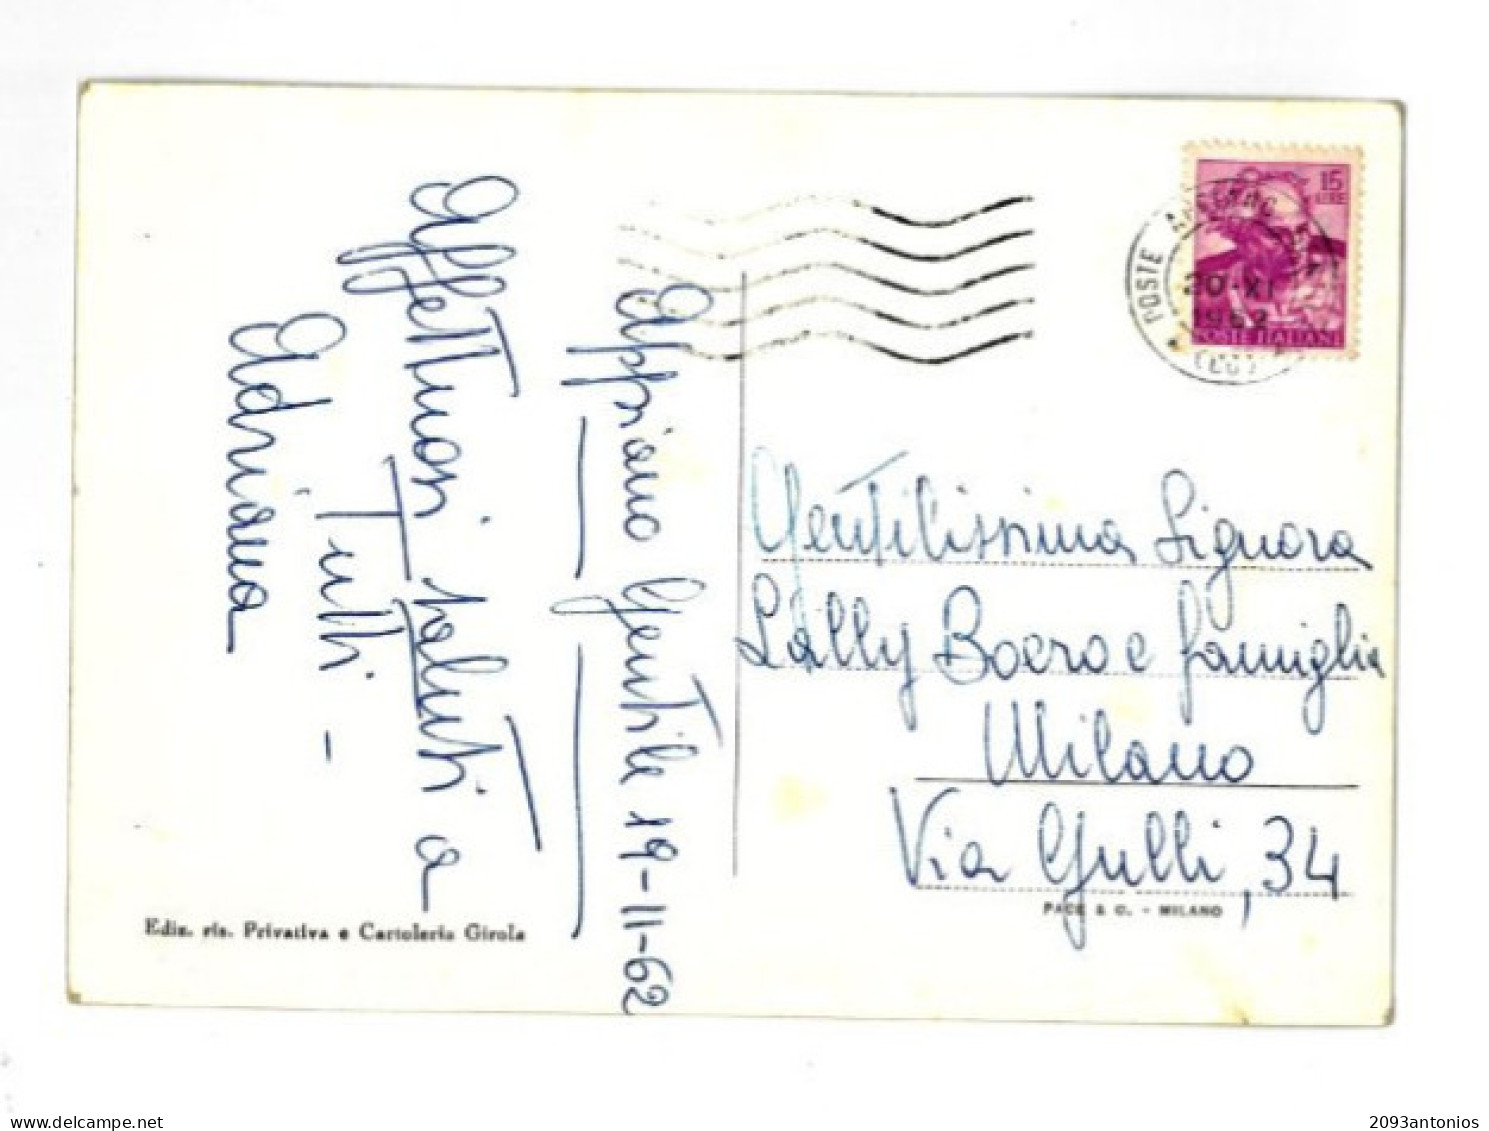 Appiano Gentile 19-11-62
Affettuosi saluti a
Tutti -
Adriana
Ediz. ris. Privativa e Cartoleria Girola
15
LIRE
POSTE ITALIANE
POSTE
20·XI
1962
Gentilissima Signora
Lally Boero e famiglia
Milano
Via Gulli, 34
PACE & C. - MILANO
2093antonios